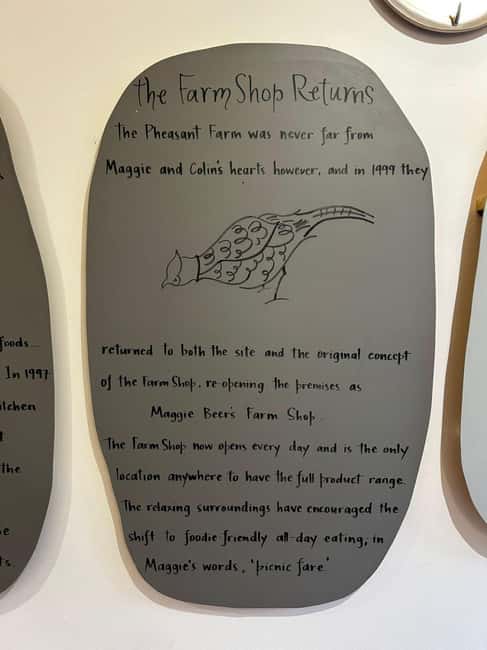 the Farm Shop Returns
the Pheasant Farm was never far from
Maggie and Colin's hearts however, and in 1999 they
returned to both the site and the original concept
of the Farm Shop, re-opening the premises as
Maggie Beer's Farm Shop.
The Farm Shop now opens every day and is the only
location anywhere to have the full product range.
The relaxing surroundings have encouraged the
shift to foodie-friendly all-day eating, in
Maggie's words, 'picnic fare.'
foods...
In 1997
kitchen
the